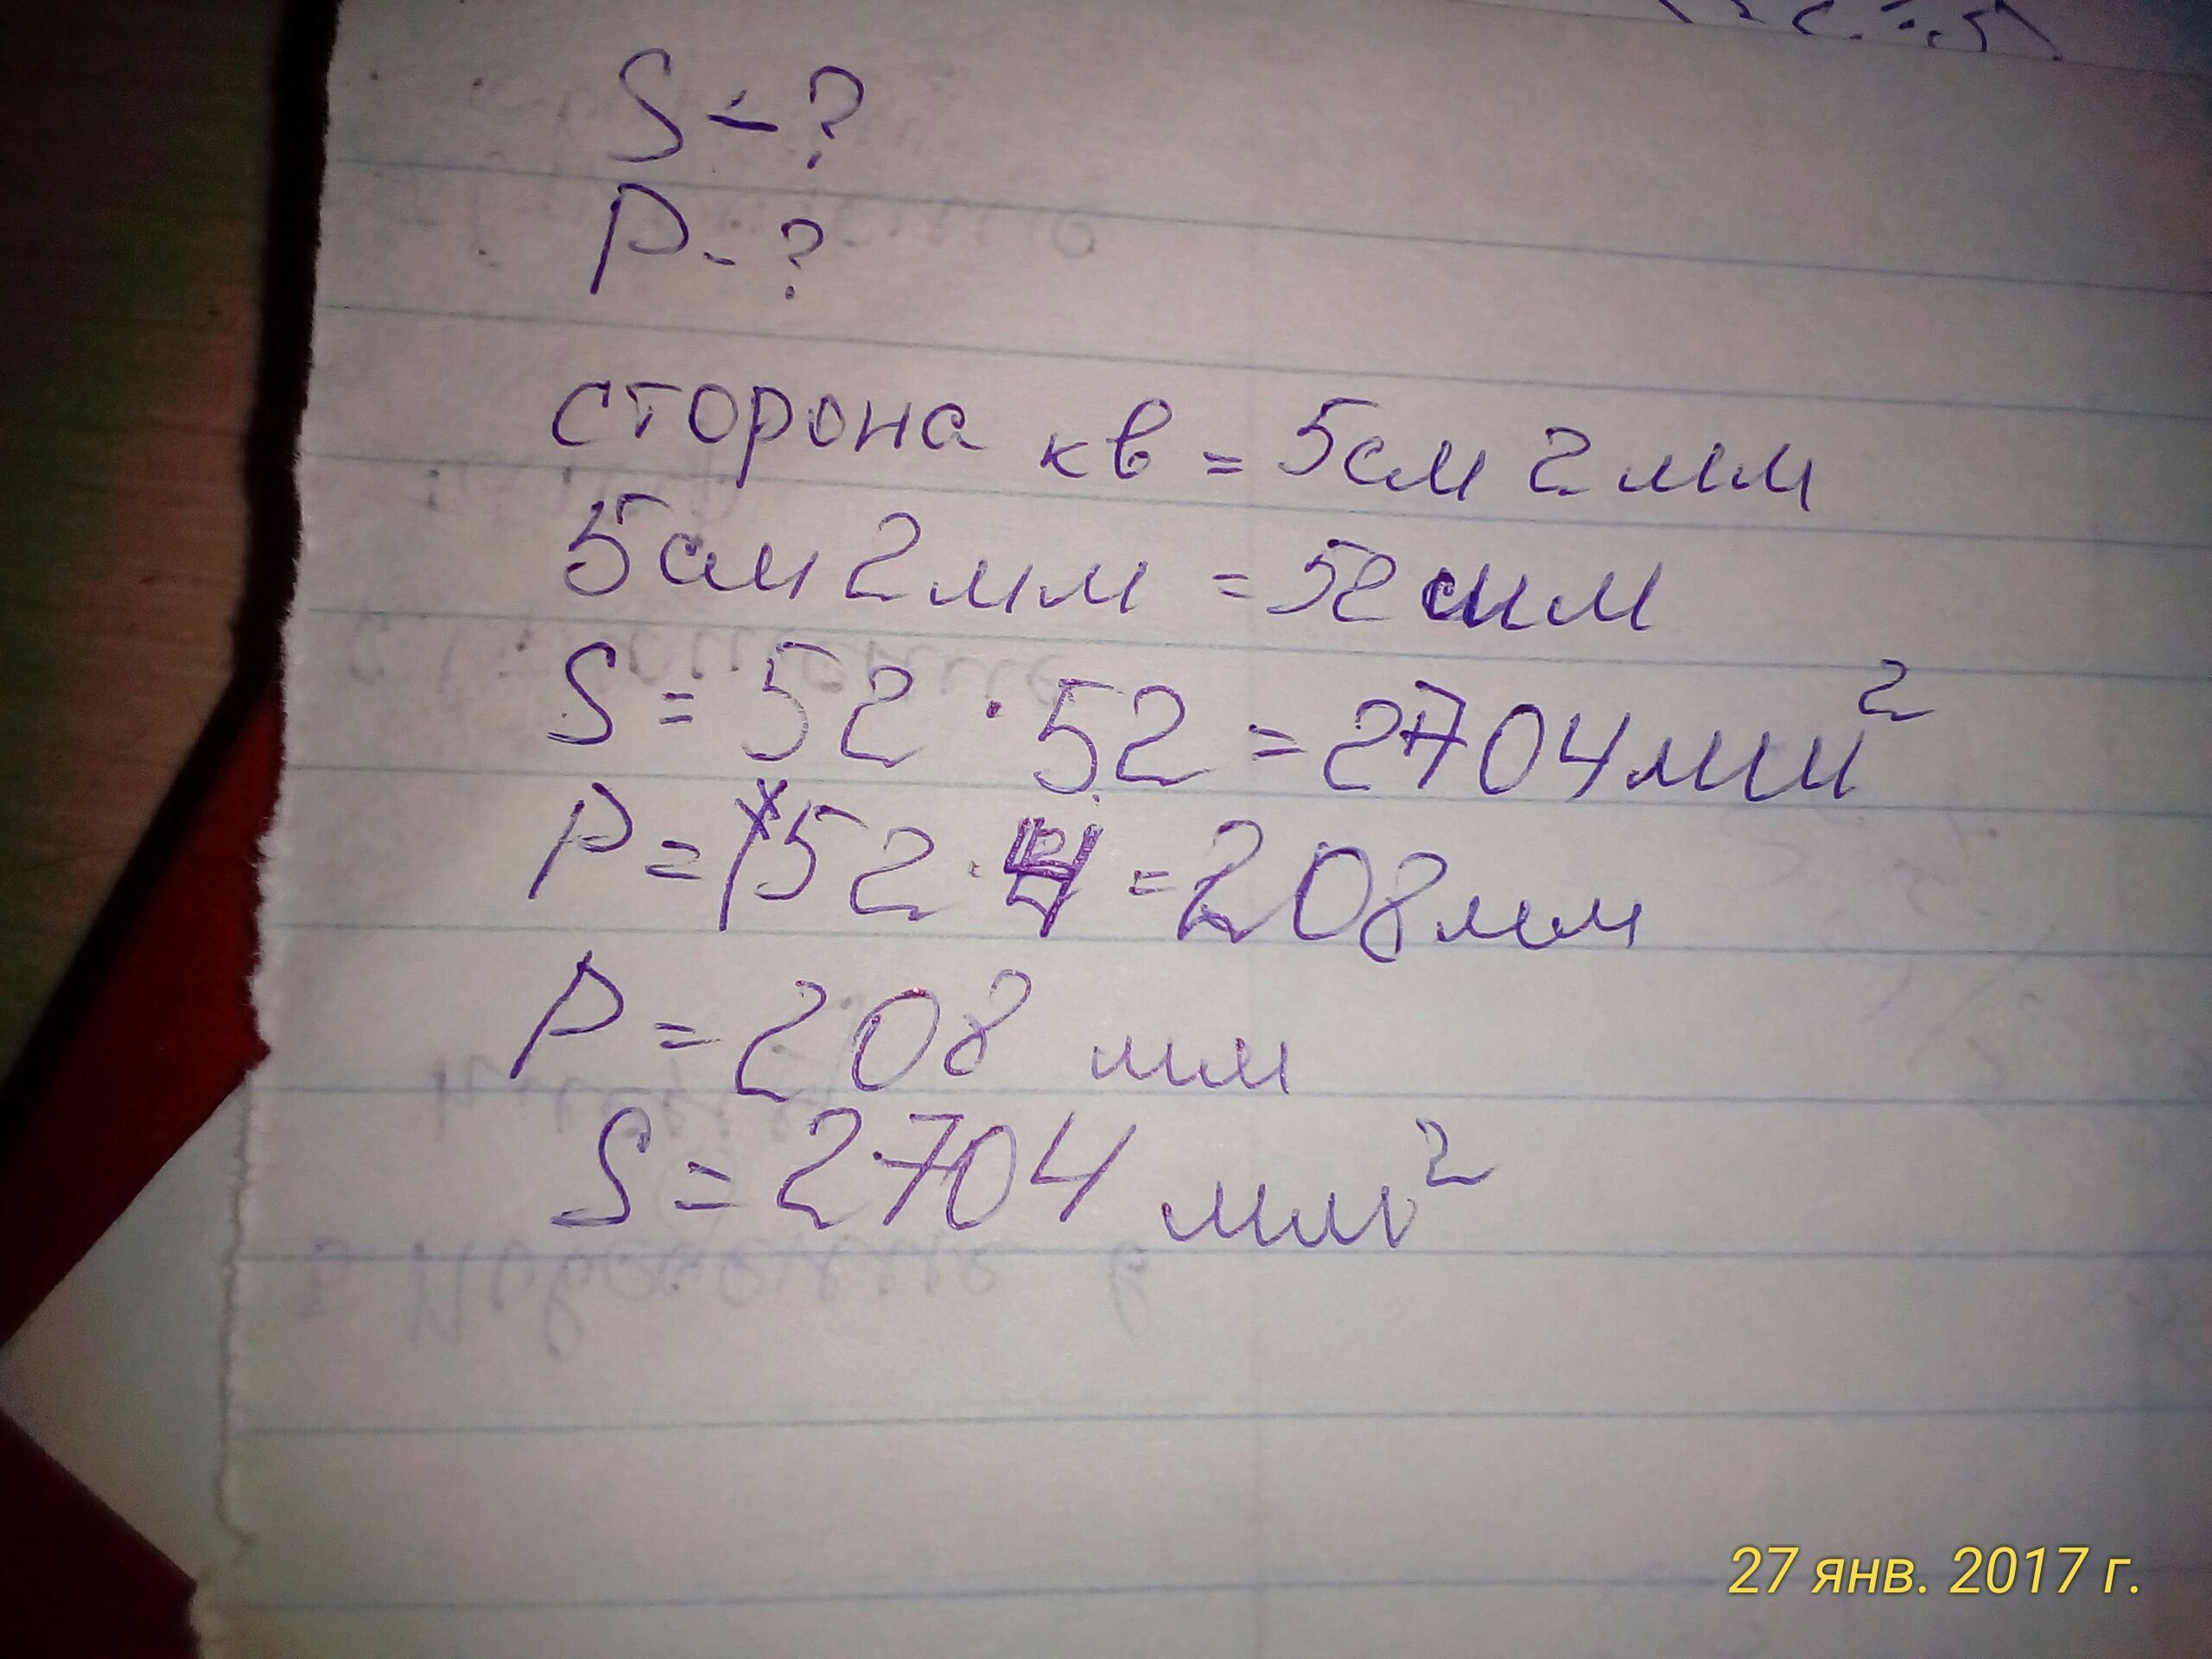 S - ?
P - ?
сторона кв = 5см 2мм
5см 2мм = 52 мм
S = 52 · 52 = 2704мм²
P = 52 · 4 = 208мм
P = 208 мм
S = 2704 мм²
27 янв. 2017 г.